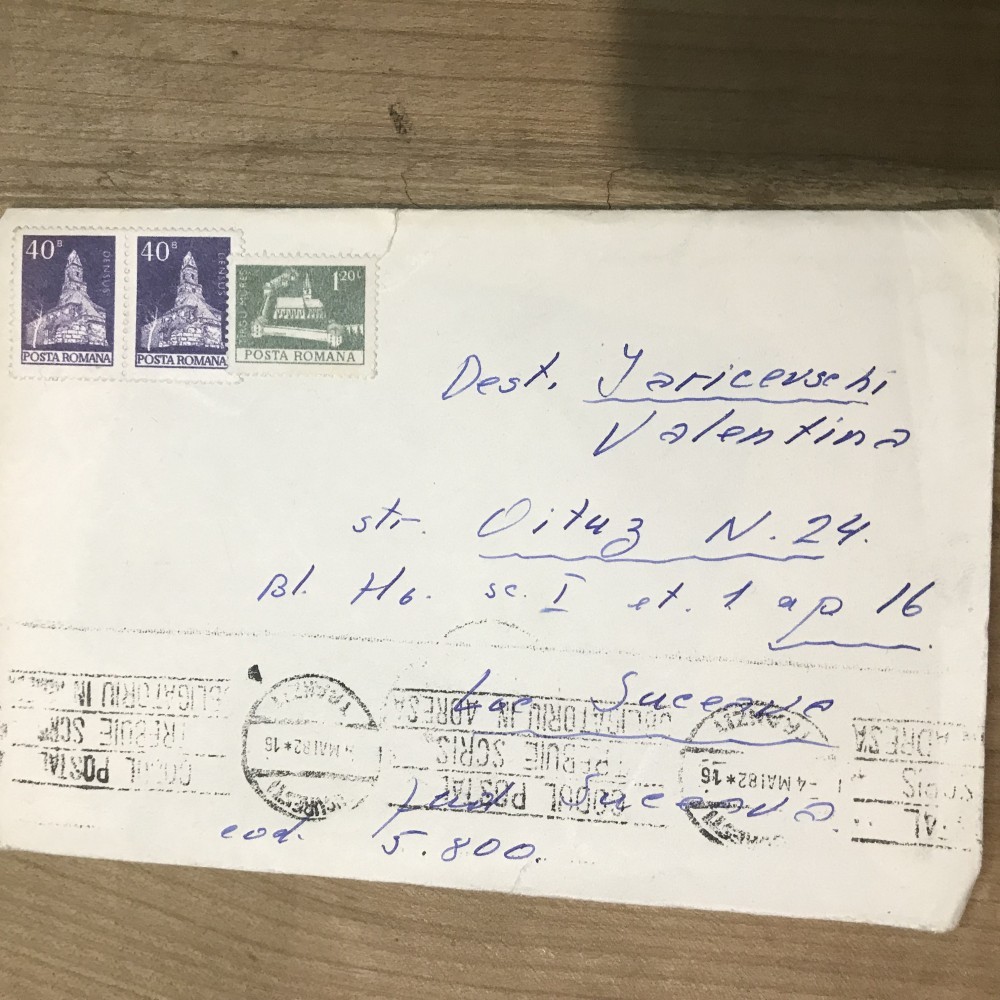 40B
DENSUS
POSTA ROMANA
40B
DENSUS
POSTA ROMANA
1,20L
TÎRGU-MUREȘ
POSTA ROMANA
Dest. Jaricevschi
Valentina
str. Oituz N. 24.
Bl. H6. sc. I et. 1 ap 16
Loc Suceava
Jud Suceava.
cod. 5.800.
CODUL POSTAL
TREBUIE SCRIS
OBLIGATORIU IN ADRESA
TRANZIT
4 MAI 82 * 16
BUCURESTI
CODUL POSTAL
TREBUIE SCRIS
OBLIGATORIU IN ADRESA
TRANZIT
-4 MAI 82 * 16
BUCURESTI